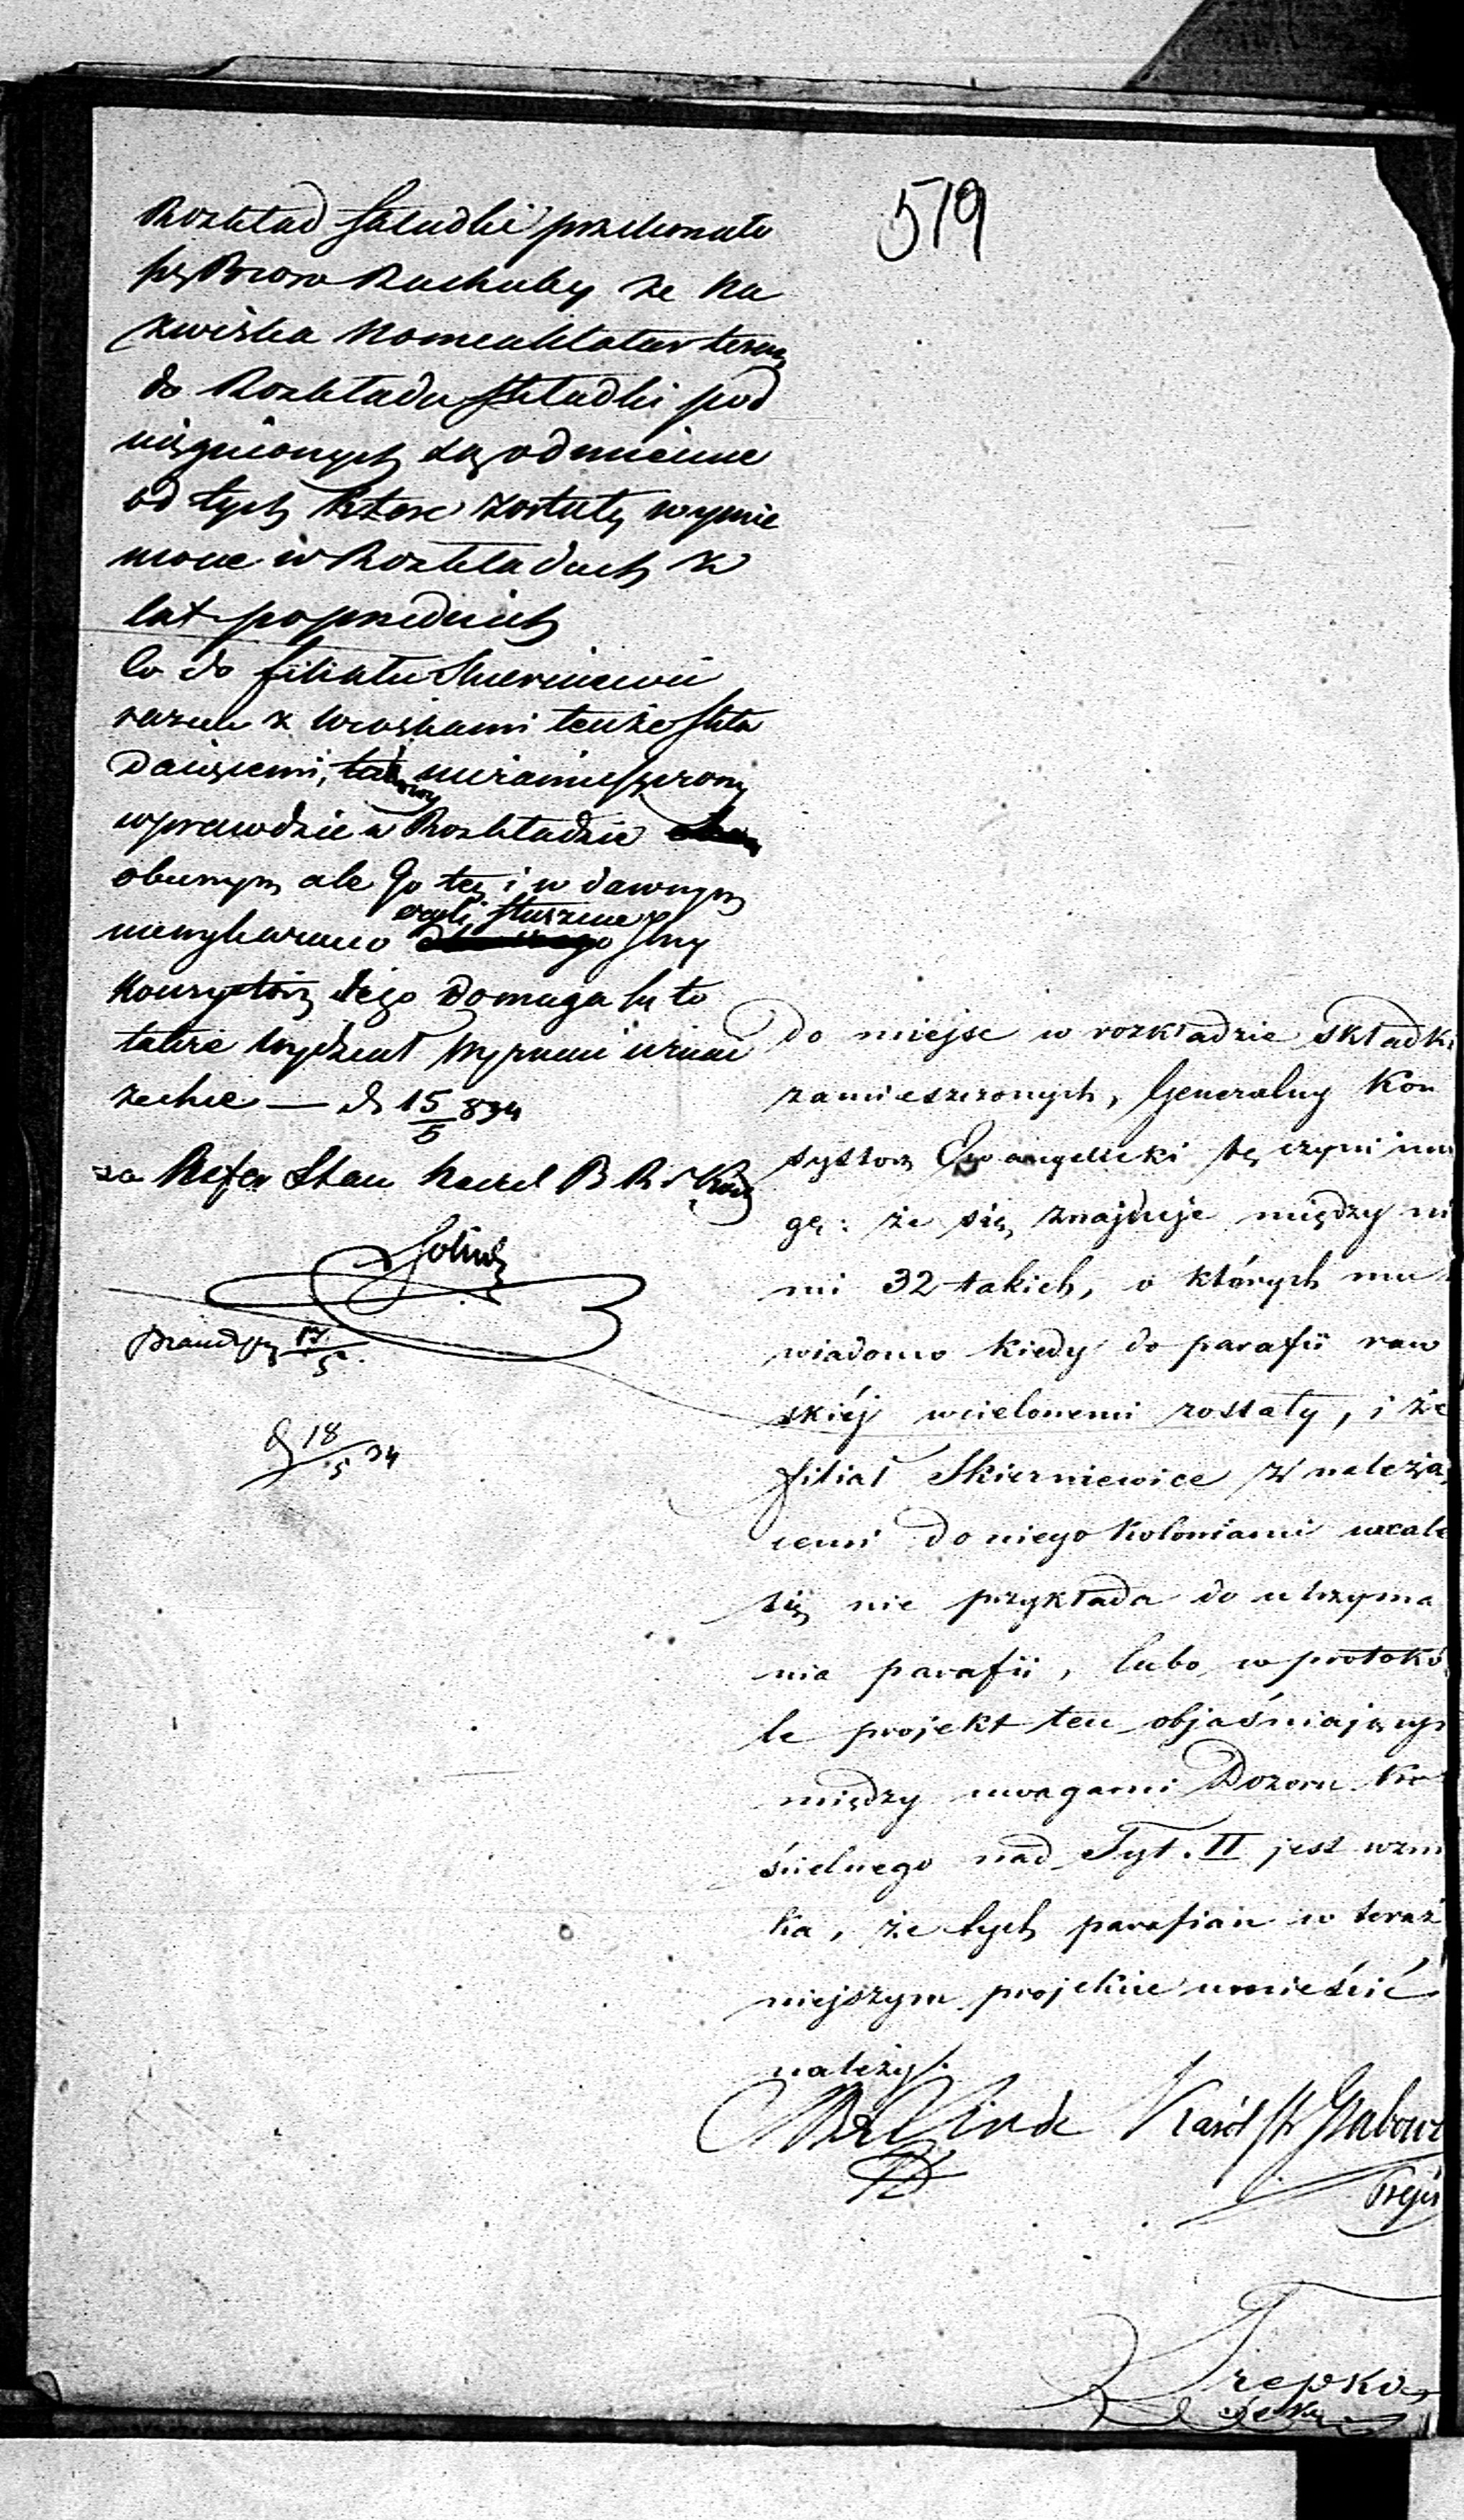 519
Rozkład składki przekonało
się Biuro Rachuby że na
zwiska Nomenklatur teraz
do Rozkładu składki pod
ciągnionych są odmienne
od tych które zostały wymie
nione w Rozkładach z
lat poprzednich
Co do filiału Skierniewic
razem z wioskami tenże skła
daiącemi, niezamieszczony
wprawdzie w Rozkładzie
obecnym ale go też i w dawnym
niewykazano
Konsystorz tego domaga się to
także Wydział
15/5 834
za Refer Stanu Naczel
17/5
18/5 34
do miejsc w rozkładzie składki
zamieszczonych, Generalny Kon
systorz Ewangelicki tę czyni uwa
gę: że się znajduje między ni
mi 32 takich, o których nie
wiadomo kiedy do parafii raw
skiéj wcielonemi zostały, i że
filiał Skierniewice z należą
cemi do niego koloniami wcale
się nie przykłada do utrzyma
nia parafii, lubo w protokó
le projekt ten objaśniającym
między uwagami Dozoru Ko
ścielnego nad Tyt. II jest wzm
ka, że tych parafian w teraź
niejszym projekcie umieścić
należy.
Linde Karól Grabow
Trepka